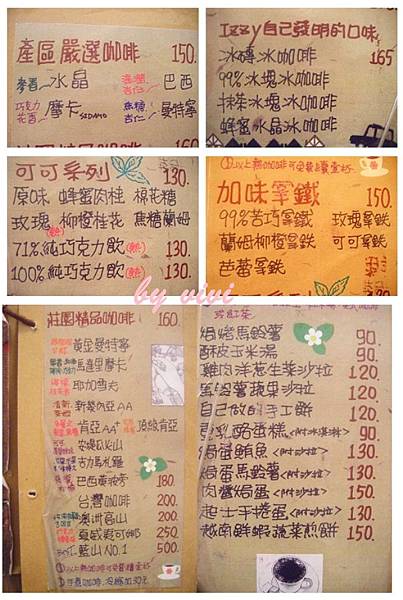 產區嚴選咖啡 150.
麥香 水晶 巴西
巧克力 花香 摩卡 SIDAMO 焦糖 杏仁 曼特寧
Izzy自己發明的口味
冰磚冰咖啡 165
99%冰塊冰咖啡
抹茶冰塊冰咖啡
蜂蜜水晶冰咖啡
可可系列 130.
原味 蜂蜜肉桂 棉花糖
玫瑰 柳橙桂花 焦糖蘭姆
71%純巧克力飲(熱) 130.
100%純巧克力飲(熱) 130.
加味拿鐵 150.
99%苦巧拿鐵 玫瑰拿鉄
蘭姆柳橙拿鉄 可可拿鉄
芭蕾拿鉄
by vivi
莊園精品咖啡 160.
黃金曼特寧
馬喜里摩卡
耶加雪夫
新幾內亞AA
肯亞AA 頂級肯亞
安提瓜火山
古力馬札羅
巴西黃波旁 180.
台灣咖啡 200.
200.
夏威夷可娜 250.
藍山NO.1 500.
焗烤馬鈴薯 90.
酥皮玉米湯 90.
雞肉洋蔥生菜沙拉 120
馬鈴薯蘋果沙拉 120
自己做的手工餅 120
乳酪蛋糕<附冰淇淋> 90.
焗蛋鮪魚<附沙拉> 130.
焗蛋馬鈴薯<附沙拉> 130.
肉醬焗蛋<附沙拉> 150.
起士千捲蛋<附沙拉> 130.
越南鮮蝦蔬菜煎餅 150.